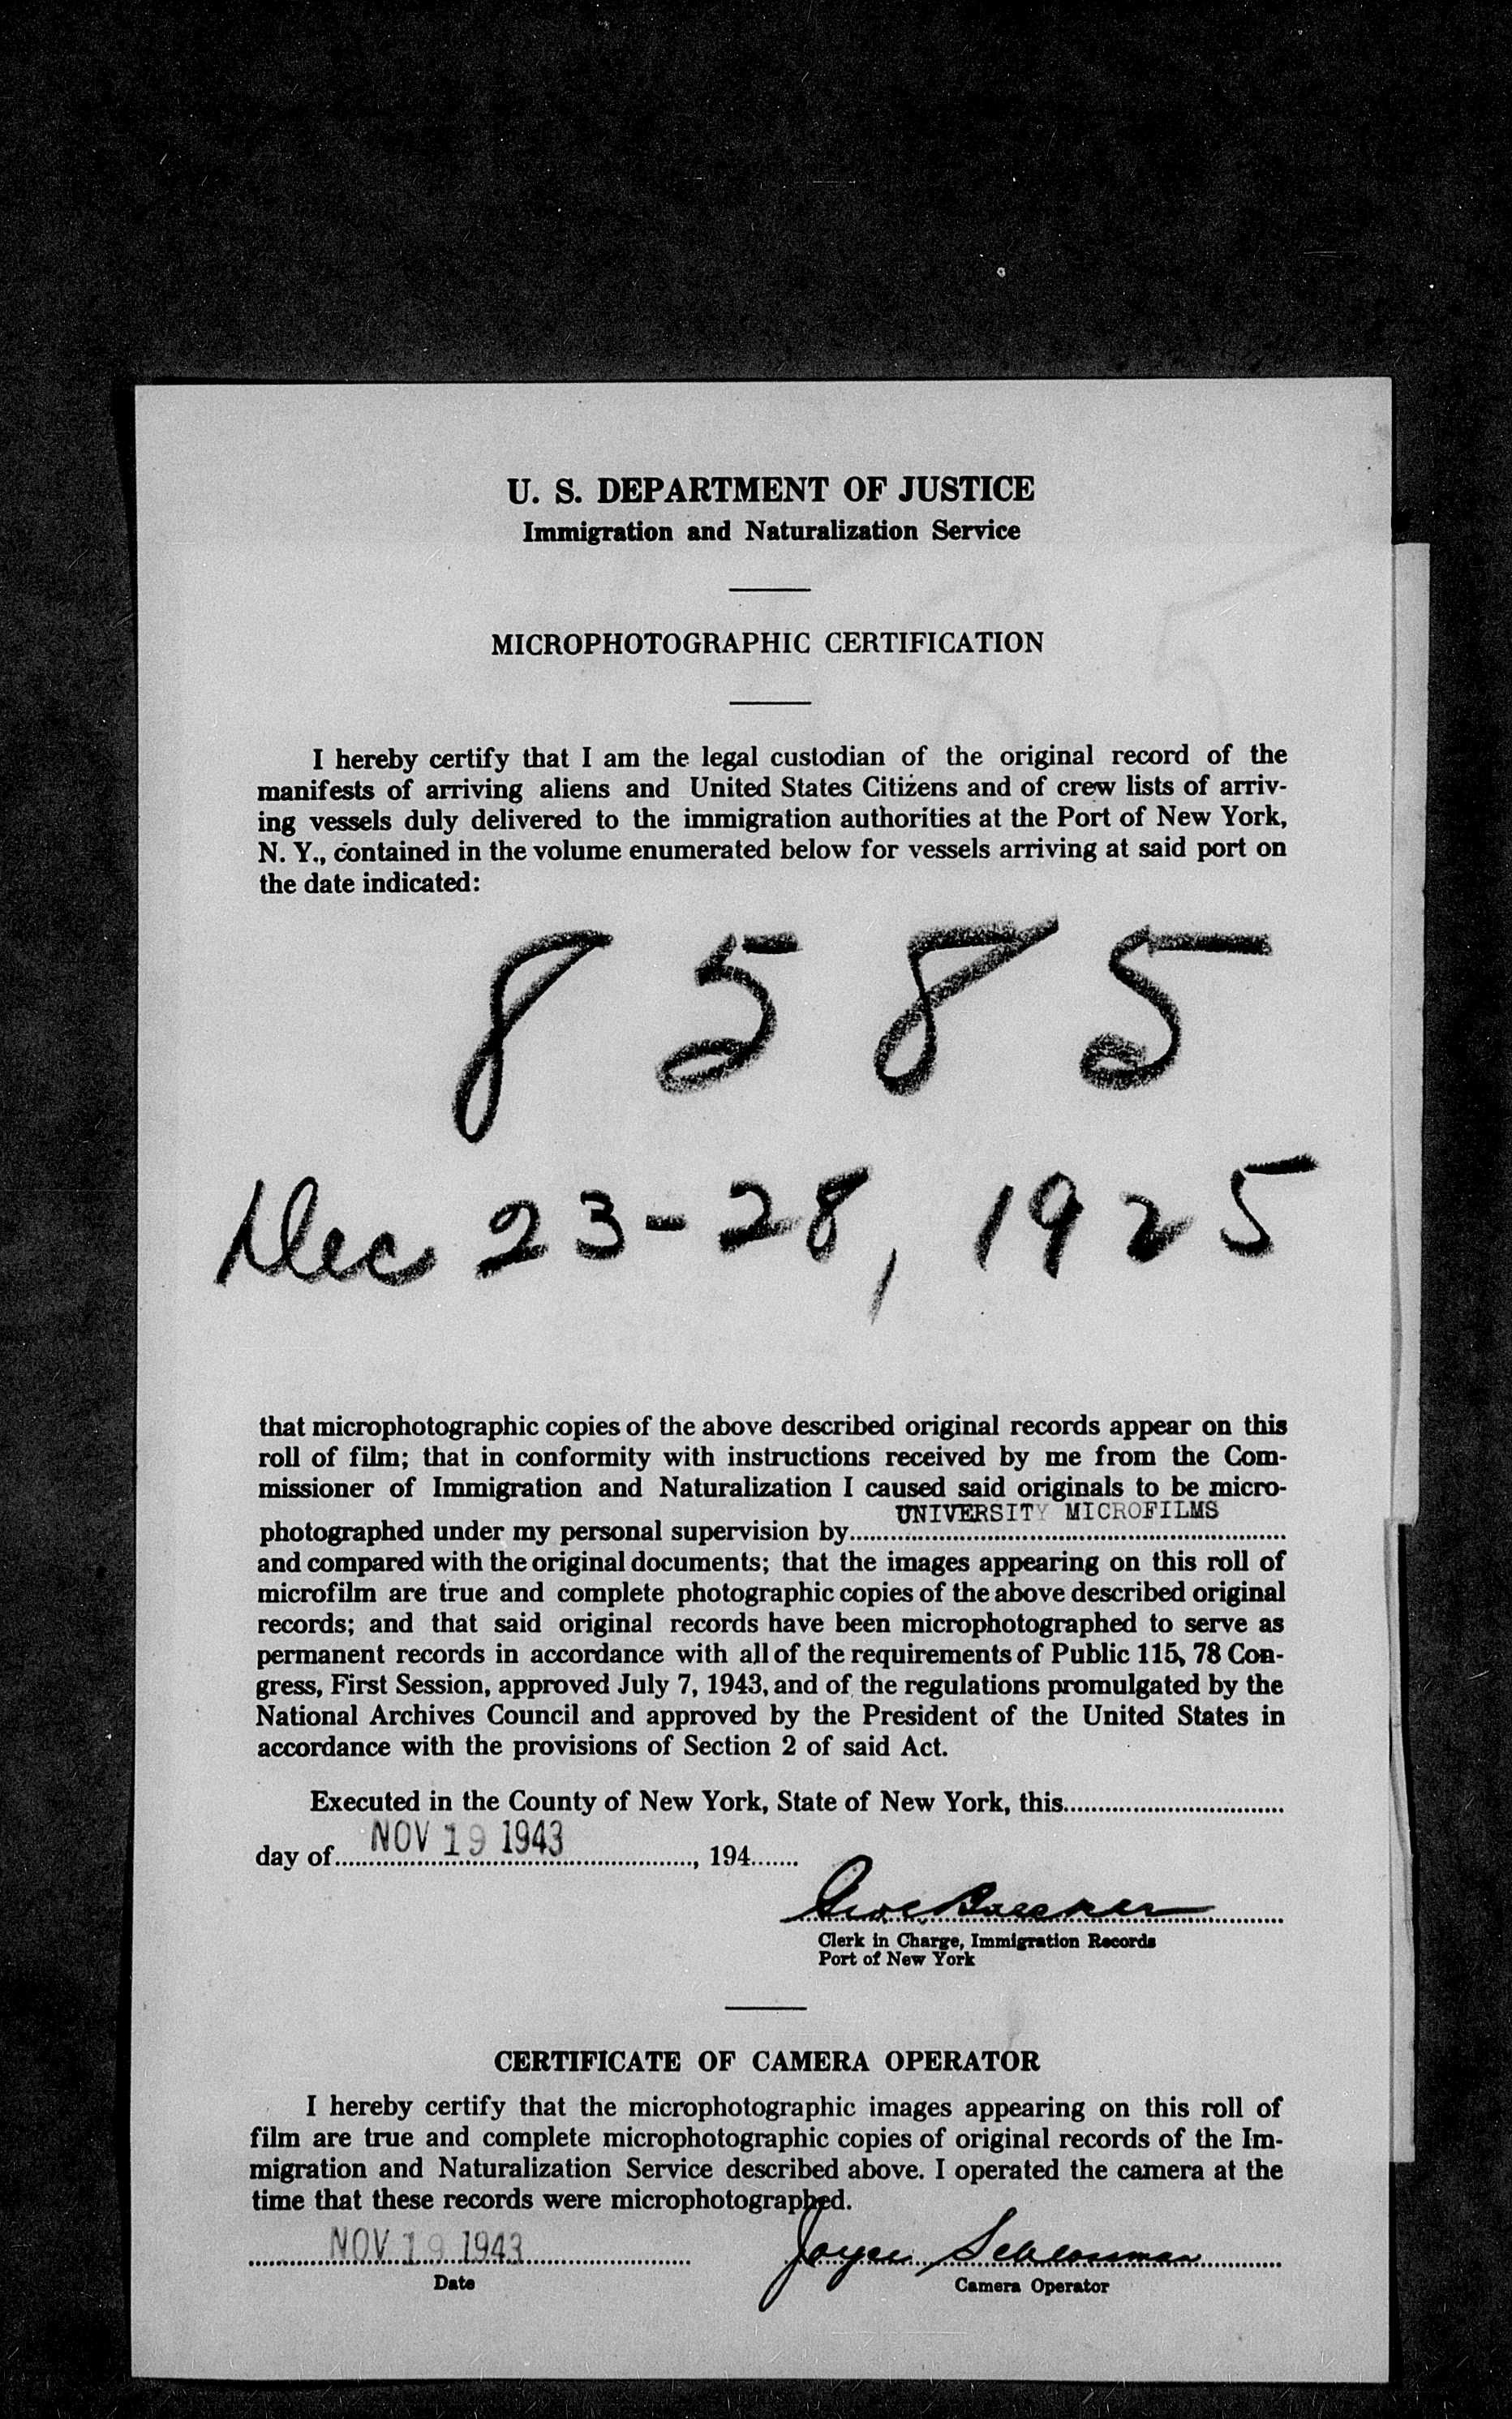 U. S. DEPARTMENT OF JUSTICE
Immigration and Naturalization Service
MICROPHOTOGRAPHIC CERTIFICATION
I hereby certify that I am the legal custodian of the original record of the
manifests of arriving aliens and United States Citizens and of crew lists of arriv-
ing vessels duly delivered to the immigration authorities at the Port of New York,
N. Y., contained in the volume enumerated below for vessels arriving at said port on
the date indicated:
8585
Dec 23-28, 1925
that microphotographic copies of the above described original records appear on this
roll of film; that in conformity with instructions received by me from the Com-
missioner of Immigration and Naturalization I caused said originals to be micro-
photographed under my personal supervision by UNIVERSITY MICROFILMS
and compared with the original documents; that the images appearing on this roll of
microfilm are true and complete photographic copies of the above described original
records; and that said original records have been microphotographed to serve as
permanent records in accordance with all of the requirements of Public 115, 78 Con-
gress, First Session, approved July 7, 1943, and of the regulations promulgated by the
National Archives Council and approved by the President of the United States in
accordance with the provisions of Section 2 of said Act.
Executed in the County of New York, State of New York, this
day of NOV 19 1943, 194
Clerk in Charge, Immigration Records
Port of New York
CERTIFICATE OF CAMERA OPERATOR
I hereby certify that the microphotographic images appearing on this roll of
film are true and complete microphotographic copies of original records of the Im-
migration and Naturalization Service described above. I operated the camera at the
time that these records were microphotographed.
NOV 19 1943 Joyce Schlossman
Date Camera Operator